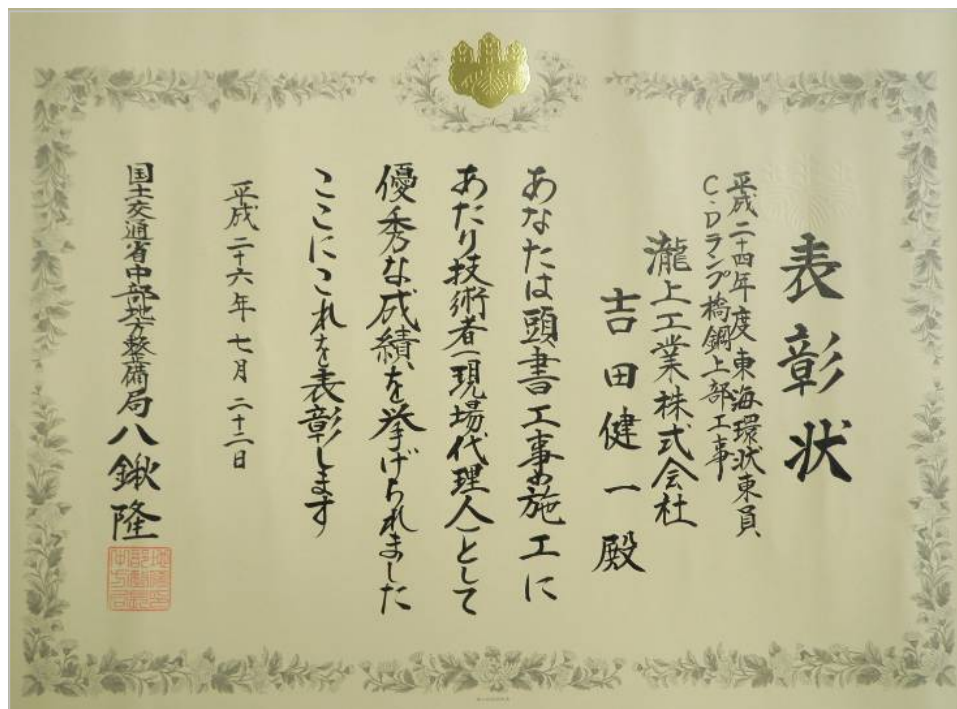 表彰状
平成二十四年度東海環状東員
C・Dランプ橋鋼上部工事
瀧上工業株式会社
吉田健一殿
あなたは頭書工事の施工に
あたり技術者(現場代理人)として
優秀な成績を挙げられました
ここにこれを表彰します
平成二十六年七月二十二日
国土交通省中部地方整備局八鍬隆